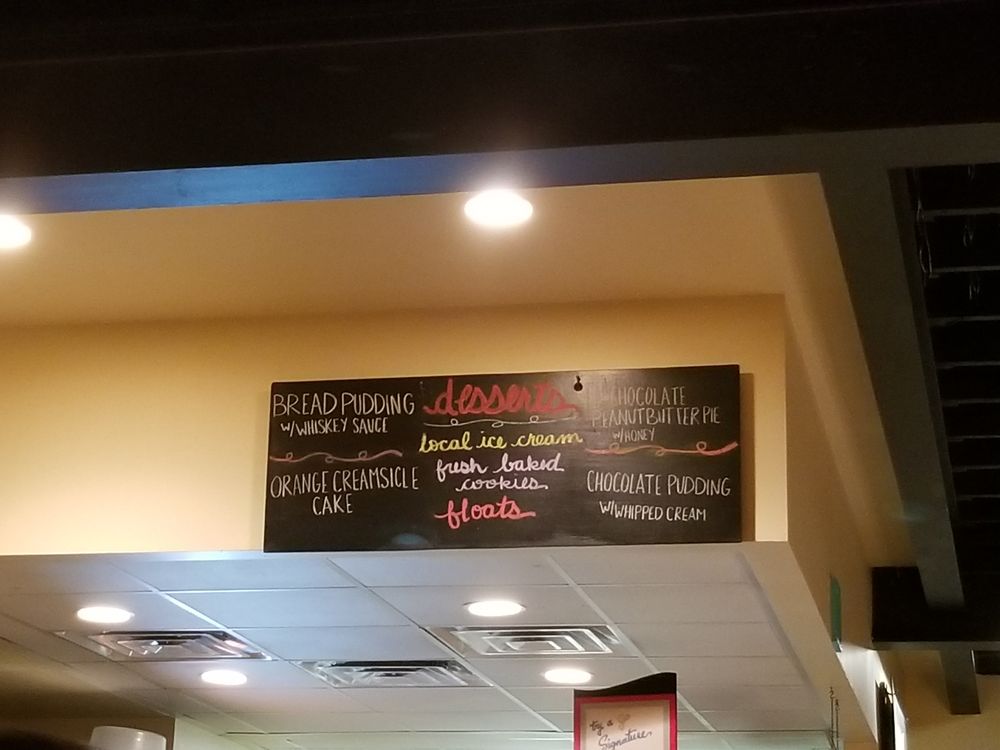 desserts
BREAD PUDDING
W/WHISKEY SAUCE
ORANGE CREAMSICLE
CAKE
local ice cream
fresh baked
cookies
floats
CHOCOLATE
PEANUTBUTTER PIE
W/HONEY
CHOCOLATE PUDDING
W/WHIPPED CREAM
try a
Signature